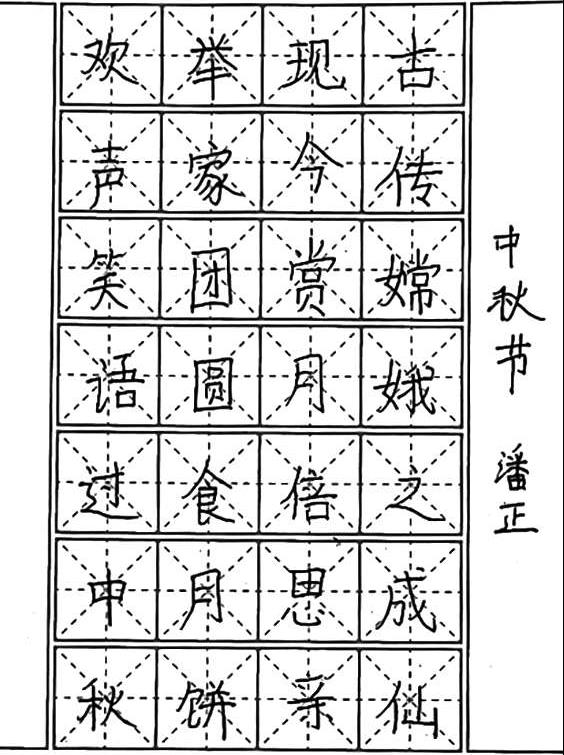 中秋节 潘正
古传嫦娥之成仙
现今赏月倍思亲
举家团圆食月饼
欢声笑语过中秋